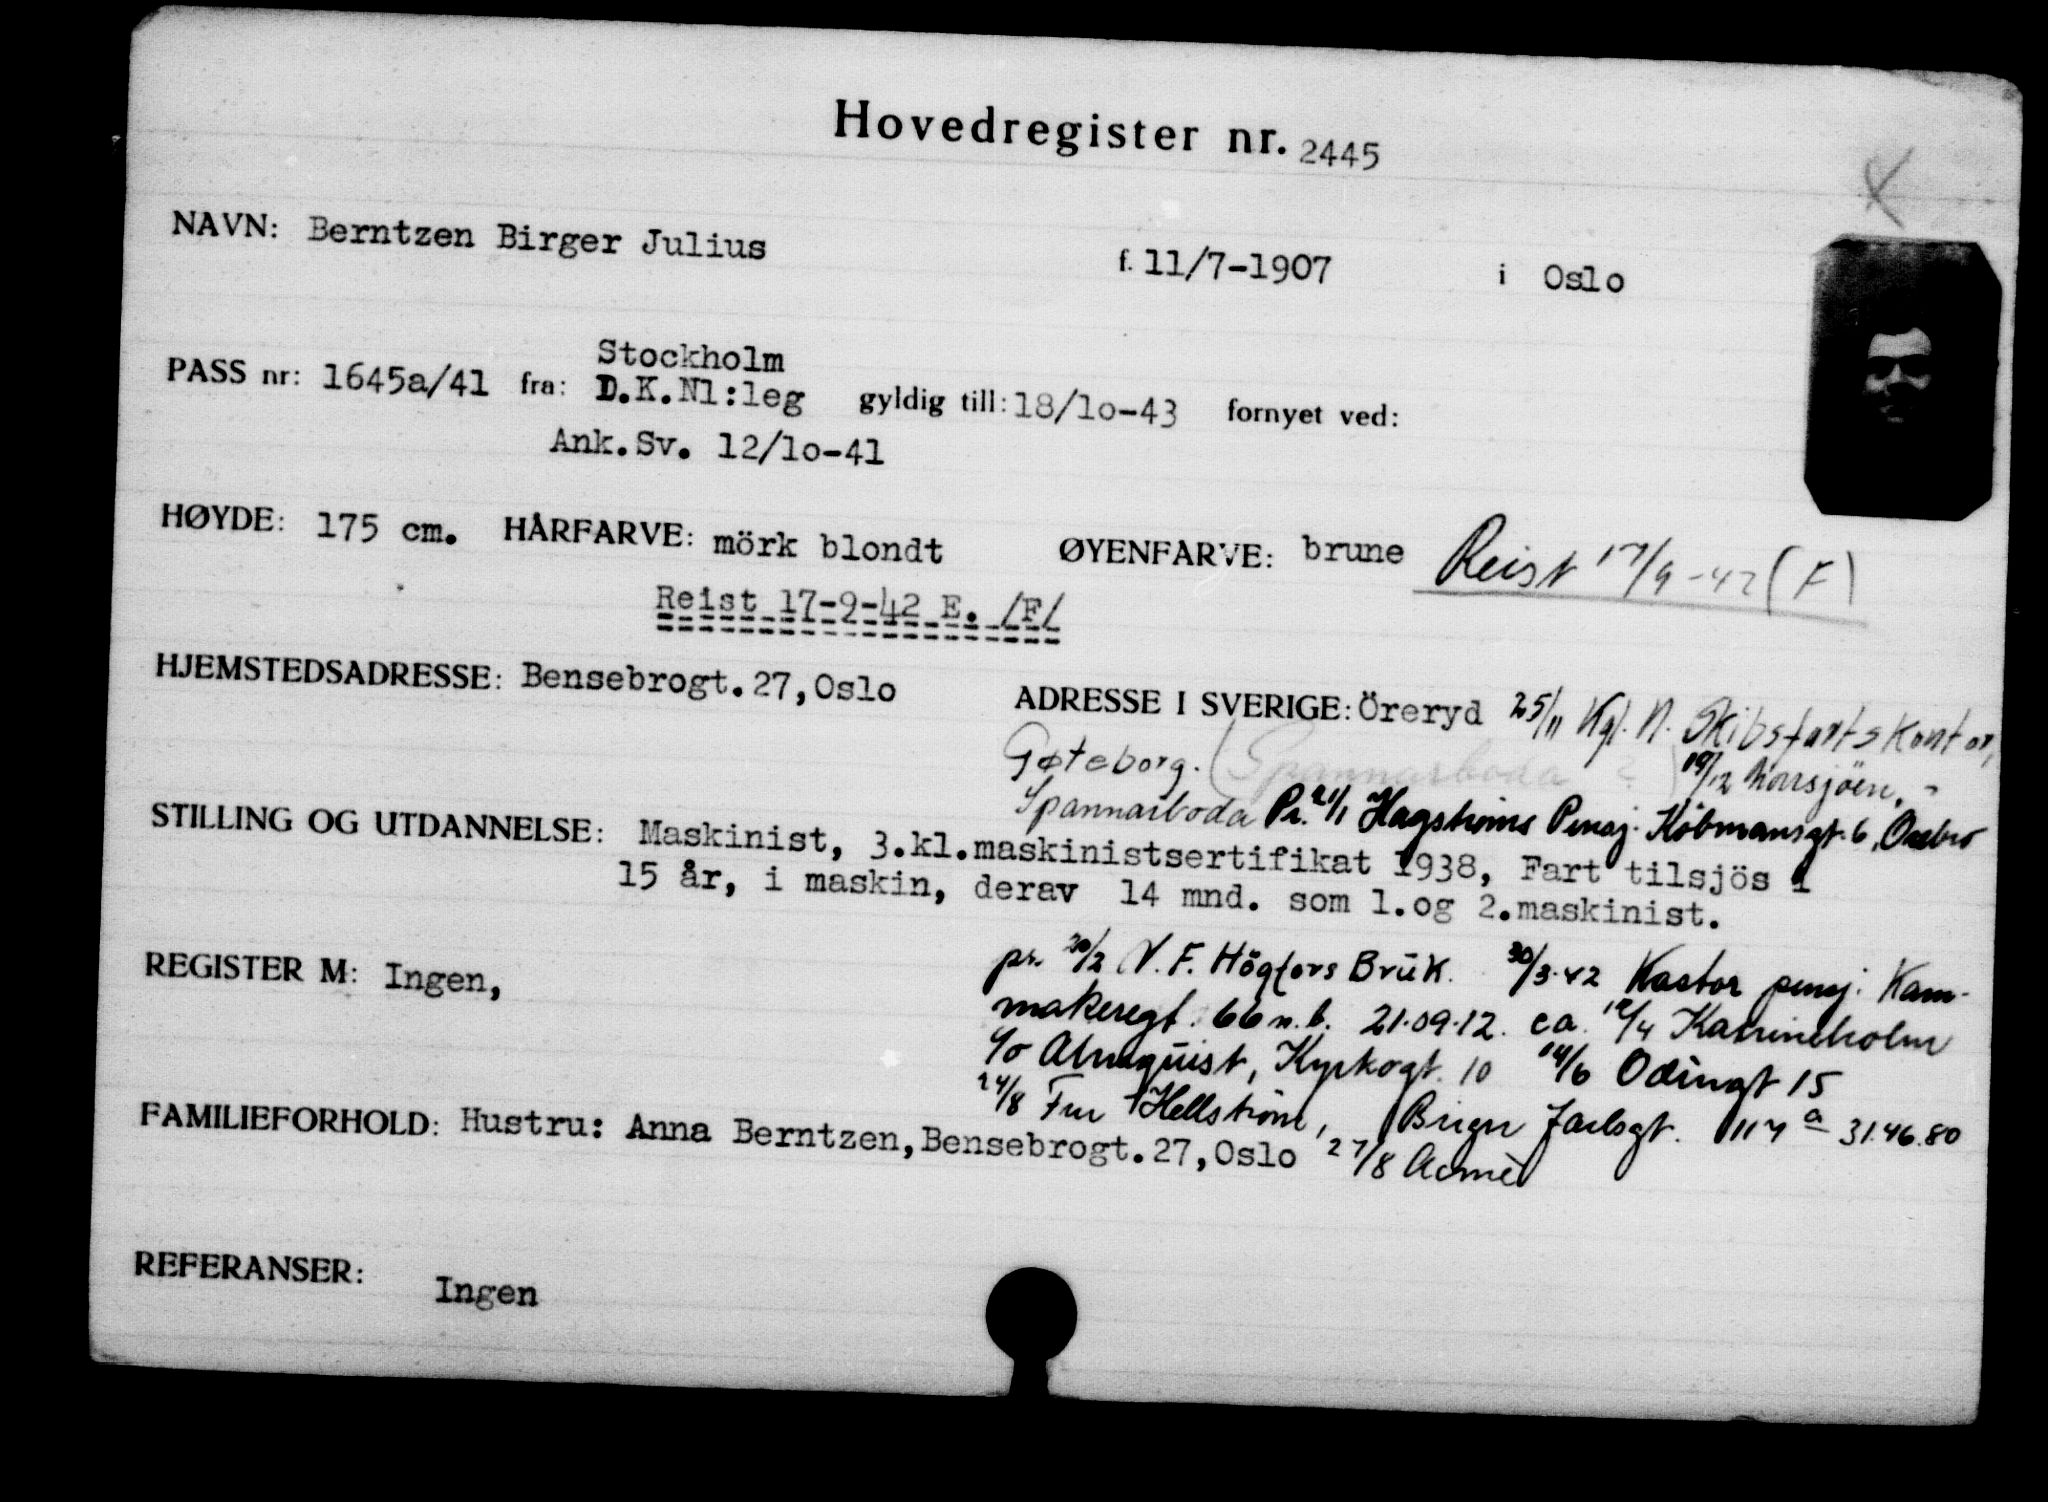 Hovedregister nr. 2445
NAVN: Berntzen Birger Julius f. 11/7-1907 i Oslo
Stockholm
PASS nr: 1645a/41 fra: D.K.Nl:leg gyldig till: 18/1o-43 fornyet ved:
Ank.Sv. 12/1o-41
HØYDE: 175 cm. HÅRFARVE: mörk blondt ØYENFARVE: brune Reist 17/9-42 (F)
Reist 17-9-42 E. /F/
HJEMSTEDSADRESSE: Bensebrogt.27,Oslo ADRESSE I SVERIGE: Öreryd 25/11 Kgl. N. Skibsfartskontor,
Gøteborg. (Spannarboda ?) 19/12
Spannarboda Pr. 21/1 Hagströms Pensj. Köbmansgt. 6, Örebro
STILLING OG UTDANNELSE: Maskinist, 3.kl.maskinistsertifikat 1938, Fart tilsjös i
15 år, i maskin, derav 14 mnd. som 1.og 2.maskinist.
REGISTER M: Ingen,
pr. 20/2 N.F. Högfors Bruk. 30/3-42 Kastor pensj. Kam-
makeregt. 66 n.b. 21.09.12. ca. /4 Katrineholm
c/o Almquist, Kyrkogt. 10 14/6 Odingt 15
24/8 Fru Hellström, Birger Jarlsgt. 117 a 31.46.80
FAMILIEFORHOLD: Hustru: Anna Berntzen,Bensebrogt.27,Oslo 27/8 Acmè
REFERANSER: Ingen